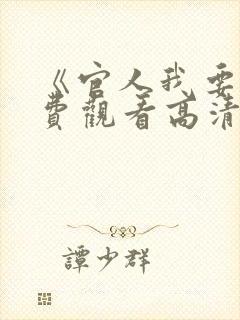 《官人我要
費觀看高清
譚少群